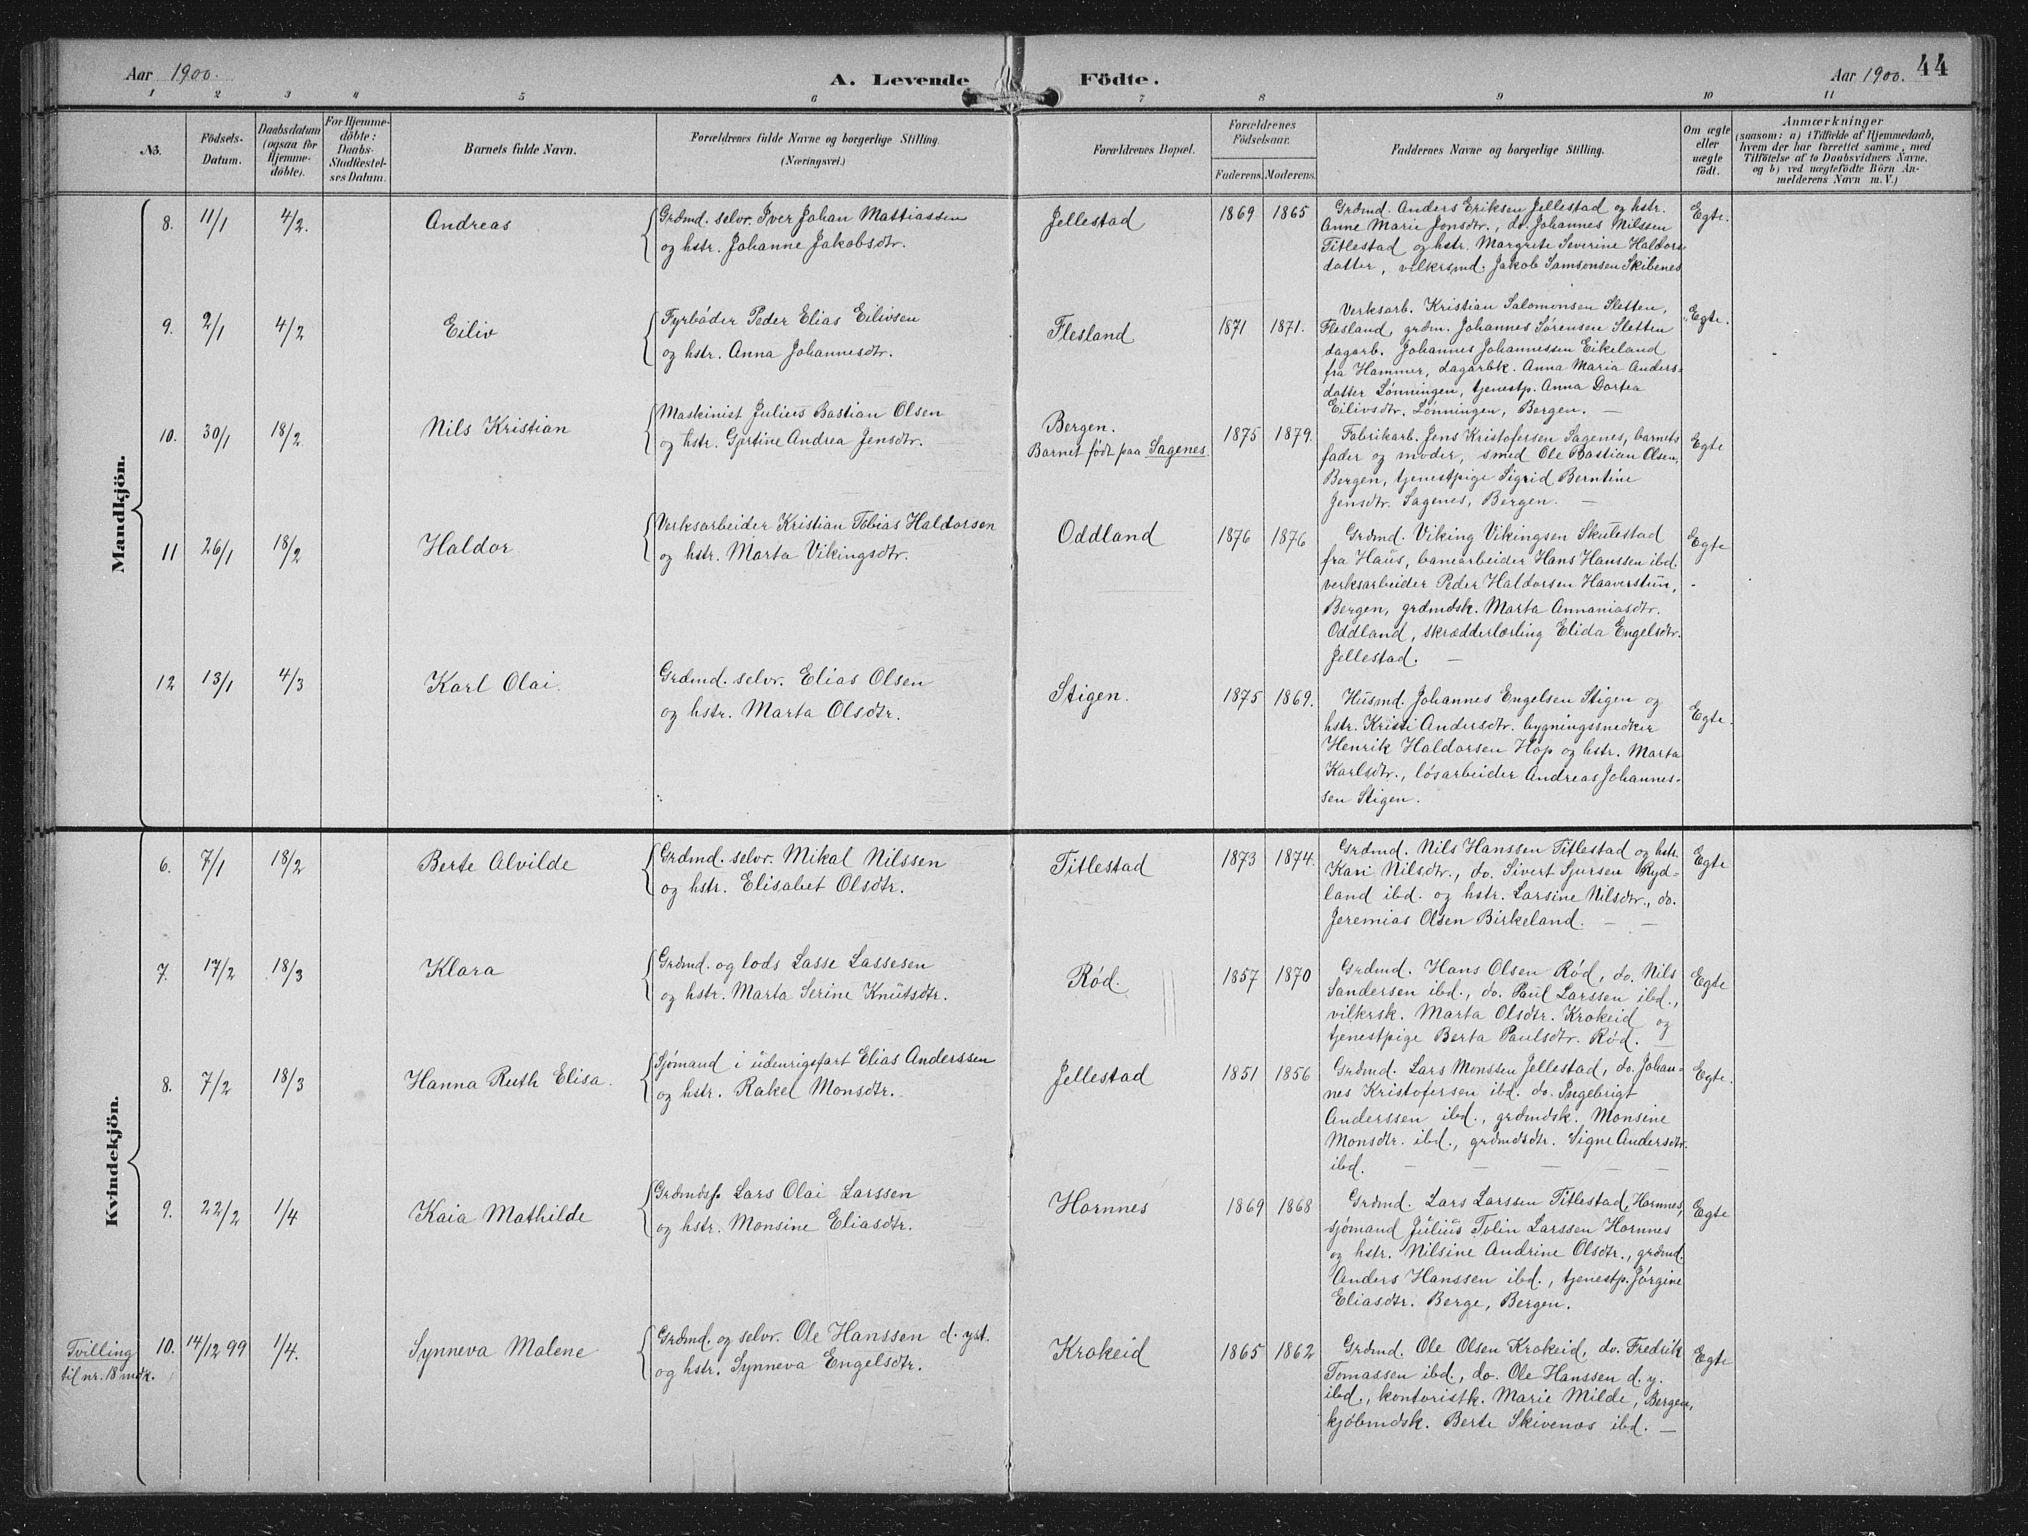 Aar 1900.
A. Levende Födte.
Aar 1900. 44
1 2 3 4 5 6 7 8 9 10 11
No.
Födsels-Datum.
Daabsdatum (ogsaa for Hjemmedöbte).
For Hjemmedöbte: Daabs-Stadfæstelses Datum.
Barnets fulde Navn.
Forældrenes fulde Navne og borgerlige Stilling.
(Næringsvei.)
Forældrenes Bopæl.
Forældrenes Födselsaar.
Faderens. Moderens.
Faddernes Navne og borgerlige Stilling.
Om ægte eller uægte födt.
Anmærkninger
(saasom: a) i Tilfælde af Hjemmedaab, hvem der har forrettet samme, med Tilföielse af to Daabsvidners Navne, og b) ved uægtefödte Börn Anmelderens Navn m. V.)
Mandkjön.
8. 11/1 4/2. Andreas
Grdmd. selvr. Iver Johan Mattiassen
og hstr. Johanne Jakobsdtr.
Jellestad 1869 1865
Grdmd. Anders Eriksen Jellestad og hstr.
Anne Marie Jonsdtr., do. Johannes Nilssen
Titlestad og hstr. Margrete Severine Haldors-
datter, vilkrsmd. Jakob Samsonsen Skibenes
Egte.
9. 2/1 4/2 Eiliv
Fyrbøder Peder Elias Eilivsen
og hstr. Anna Johannesdtr.
Flesland 1871 1871.
Verksarb. Kristian Salomonsen Sletten,
Flesland, grdm. Johannes Sørensen Sletten
dagarb. Johannes Johannessen Eikeland
fra Hammer, dagarbk. Anna Maria Anders-
datter Lønningen, tjenestp. Anna Dortea
Eilivsdtr. Lønningen, Bergen. —
Egte.
10. 30/1 18/2. Nils Kristian
Maskinist Julius Bastian Olsen
og hstr. Gjertine Andrea Jensdtr.
Bergen.
Barnet født paa Sagenes.
1875 1879.
Fabrikarb. Jens Kristofersen Sagenes, barnets
fader og moder, smed Ole Bastian Olsen,
Bergen, tjenestpige Sigrid Berntine
Jensdtr. Sagenes, Bergen. —
Egte
11 26/1 18/2 Haldor
Verksarbeider Kristian Tobias Haldorsen
og hstr. Marta Vikingsdtr.
Oddland 1876 1876
Grdmd. Viking Vikingsen Skulestad
fra Haus, banearbeider Hans Hanssen ibd.
verksarbeider Peder Haldorsen Haaverstun,
Bergen, grdmdsk. Marta Annaniasdtr.
Oddland, skrædderlærling Elida Engelsdtr.
Jellestad. —
Egte
12 13/1 4/3 Karl Olai.
Grdmd. selvr. Elias Olsen
og hstr. Marta Olsdtr.
Stigen. 1875 1869.
Husmd. Johannes Engelsen Stigen og
hstr. Kristi Andersdtr. bygningssnedker
Henrik Haldorsen Hop og hstr. Marta
Karlsdtr., løsarbeider Andreas Johannes-
sen Stigen.
Egte.
Kvindekjön.
6. 7/1 18/2 Berte Alvilde
Grdmd. selvr. Mikal Nilssen
og hstr. Elisabet Olsdtr.
Titlestad 1873 1874.
Grdmd. Nils Hanssen Titlestad og hstr.
Kari Nilsdtr., do. Sivert Sjursen Ryd-
land ibd. og hstr. Larsine Nilsdtr., do.
Jeremias Olsen Birkeland. —
Egte
7. 17/2 18/3 Klara
Grdmd. og lods Lasse Lassesen
og hstr. Marta Serine Knutsdtr.
Rød. 1857 1870
Grdmd. Hans Olsen Rød, do. Nils
Sandersen ibd., do. Paul Larssen ibd.,
vilkrsk. Marta Olsdtr. Krokeid og
tjenestpige Berta Paulsdtr. Rød. —
Egte
8. 7/2 18/3 Hanna Ruth Elisa.
Sjømand i udenrigsfart Elias Anderssen
og hstr. Rakel Monsdtr.
Jellestad 1851 1856
Grdmd. Lars Monssen Jellestad, do. Johan-
nes Kristofersen ibd. do. Ingebrigt
Anderssen ibd., grdmdsk. Monsine
Monsdtr. ibd., grdmdsdtr. Signe Andersdtr.
ibd. —
Egte
9. 22/2 1/4 Kaia Mathilde
Grdmds. Lars Olai Larssen
og hstr. Monsine Eliasdtr.
Hornnes 1869 1868
Grdmd. Lars Larssen Titlestad, Hornnes,
sjømand Julius Tolin Larssen Hornnes
og hstr. Nilsine Andrine Olsdtr., grdmd.
Anders Hanssen ibd., tjenestp. Jørgine
Eliasdtr. Berge, Bergen.
Egte
Tvilling
til nr. 18 mdk.
10. 14/12 99 1/4. Synneva Malene
Grdmd. og selvr. Ole Hanssen d. yst.
og hstr. Synneva Engelsdtr.
Krokeid 1865 1862
Grdmd. Ole Olsen Krokeid, do. Fredrik
Tomassen ibd., do. Ole Hanssen d. y.
ibd., kontoristk. Marie Milde, Bergen,
kjøbmdsk. Berte Skivenes ibd. —
Egte